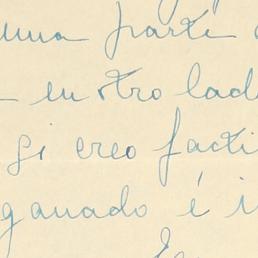 una parte
en otro lad
si creo facti
ganado é i